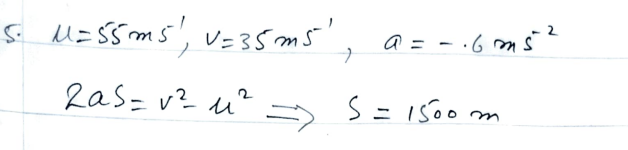 5. u=55ms⁻¹, v=35ms⁻¹, a = -.6 ms⁻²
2aS = v² - u² ⟹ S = 1500 m